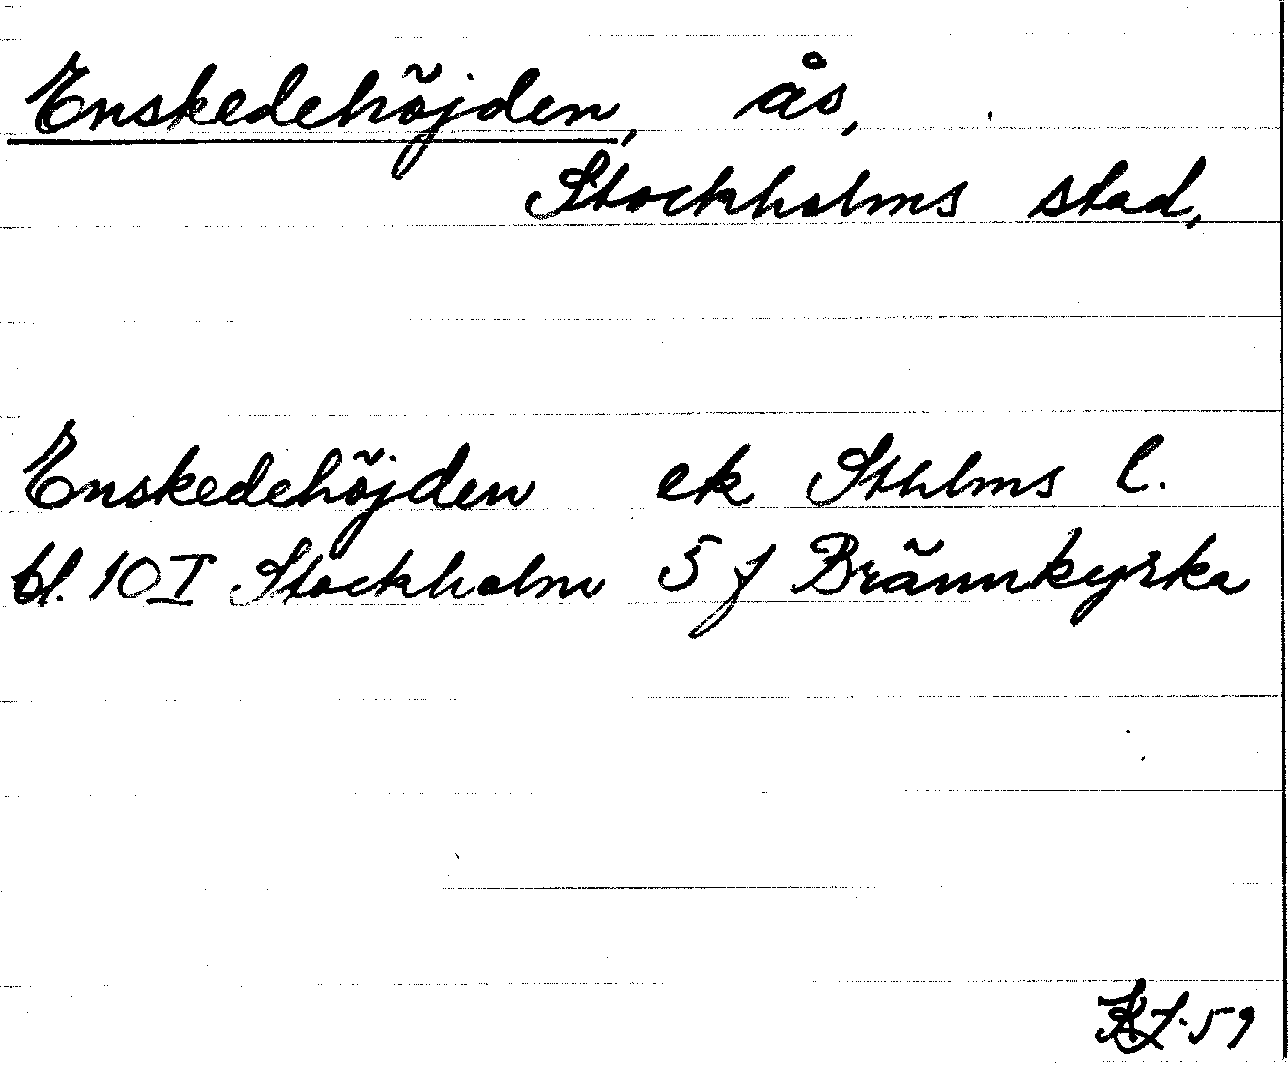 Enskedehöjden, ås,
Stockholms stad,
Enskedehöjden ek Sthlms l.
bl. 10 I Stockholm 5 f Brännkyrka
59